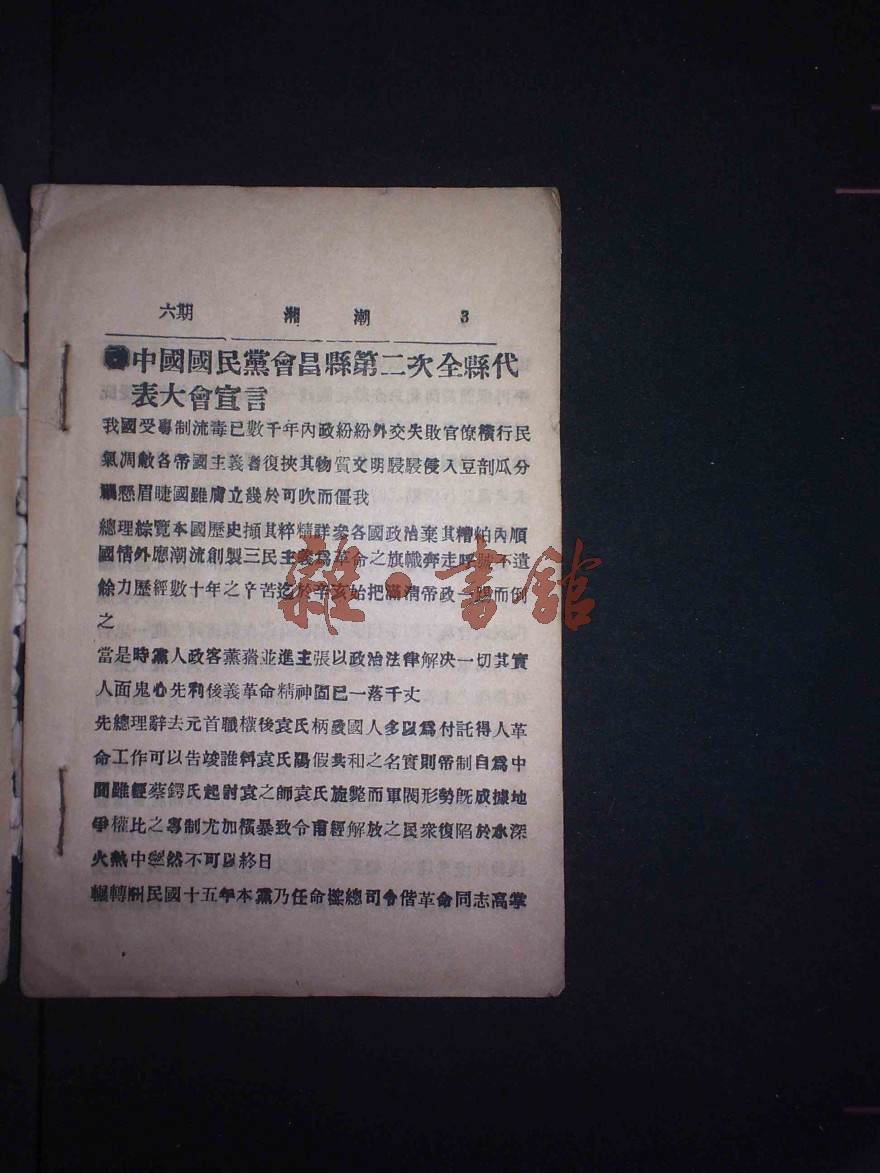 六期 湘潮 3
中國國民黨會昌縣第二次全縣代
表大會宣言
我國受專制流毒已數千年內政紛紛外交失敗官僚橫行民
氣凋敝各帝國主義者復挾其物質文明駸駸侵入豆剖瓜分
禍懸眉睫國雖膚立幾於可吹而僵我
總理綜覽本國歷史擷其粹精詳參各國政治棄其糟粕內順
國情外應潮流創製三民主義爲革命之旗幟奔走呼號不遺
餘力歷經數十年之辛苦迄於辛亥始把滿清帝政一蹋而倒
之
當是時黨人政客薰蕕並進主張以政治法律解决一切其實
人面鬼心先利後義革命精神固已一落千丈
先總理辭去元首職權後袁氏柄政國人多以爲付託得人革
命工作可以告竣誰料袁氏陽假共和之名實則帝制自爲中
間雖經蔡鍔氏起討袁之師袁氏旋斃而軍閥形勢旣成據地
爭權比之專制尤加橫暴致令甫經解放之民衆復陷於水深
火熱中然不可以終日
輾轉民國十五年本黨乃任命總司令偕革命同志高掌
雜·書館